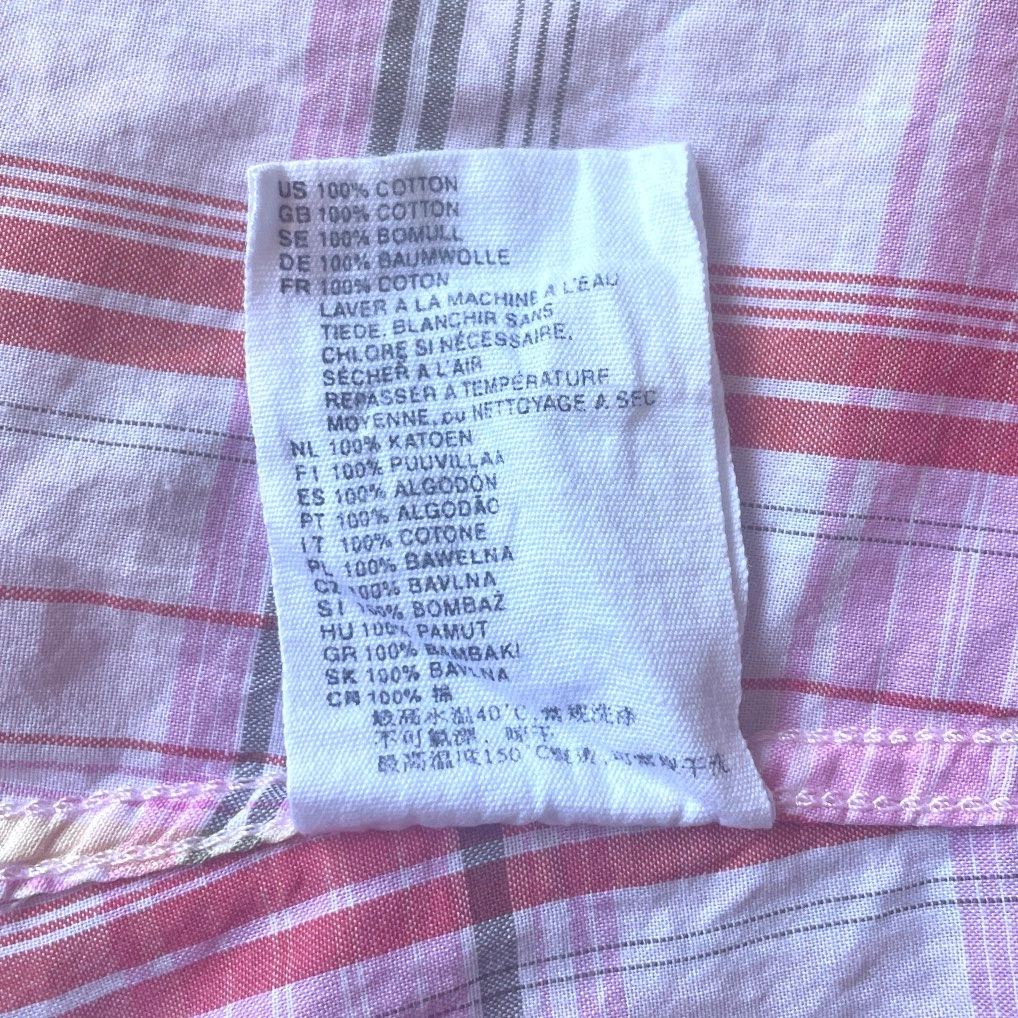 US 100% COTTON
GB 100% COTTON
SE 100% BOMULL
DE 100% BAUMWOLLE
FR 100% COTON
LAVER A LA MACHINE A L'EAU
TIEDE. BLANCHIR SANS
CHLORE SI NÉCESSAIRE.
SÉCHER A L'AIR
REPASSER A TEMPÉRATURE
MOYENNE. OU NETTOYAGE A SEC
NL 100% KATOEN
FI 100% PUUVILLAA
ES 100% ALGODÓN
PT 100% ALGODÃO
IT 100% COTONE
PL 100% BAWELNA
CZ 100% BAVLNA
SI 100% BOMBAŽ
HU 100% PAMUT
GR 100% BAMBAKI
SK 100% BAVLNA
CN 100% 棉
最高水温40°C,常规洗涤
不可氯漂, 晾干
最高温度150°C熨烫,可常规干洗